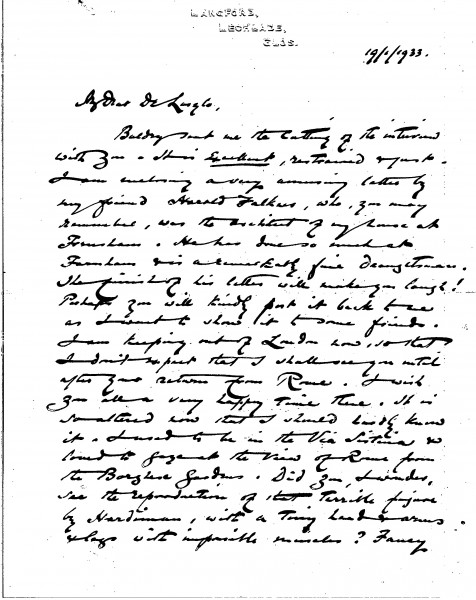 LANGFORD,
LECHLADE,
GLOS.
19/1/1933.
My dear De Laszlo,
Baldry sent me the cutting of the interview
with you & it is excellent, restrained & just.
I am enclosing a very amusing letter by
my friend Harold Falkner, who, you may
remember, was the architect of my house at
Farnham. He has done so much at
Farnham & is a remarkably fine draughtsman.
The finish of his letter will make you laugh!
Perhaps you will kindly post it back to me
as I want to show it to some friends.
I am keeping out of London now, so that
I don't expect that I shall see you until
after your return from Rome. I wish
you all a very happy time there. It is
so altered now that I should hardly know
it. I used to be in the Via Sistina &
loved to gaze at the view of Rome from
the Borghese Gardens. Did you, I wonder,
see the reproduction of that terrible figure
by Hardiman, with a tiny head & arms
& legs with impossible muscles? Fancy